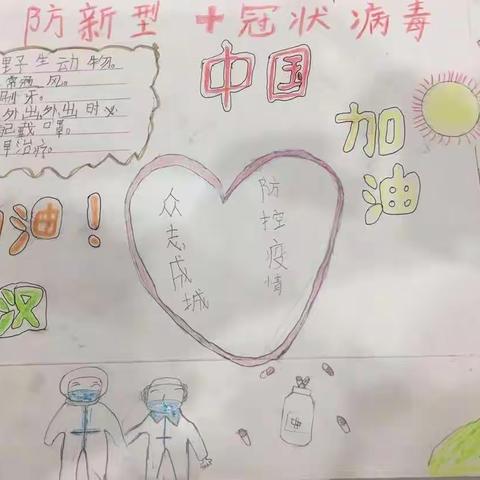 防新型十冠状病毒
野生动物。
常洒风。
刷牙。
外出外出时必
配戴口罩。
早治疗。
中国
加油
众志成城
防控疫情
油！
汉
中